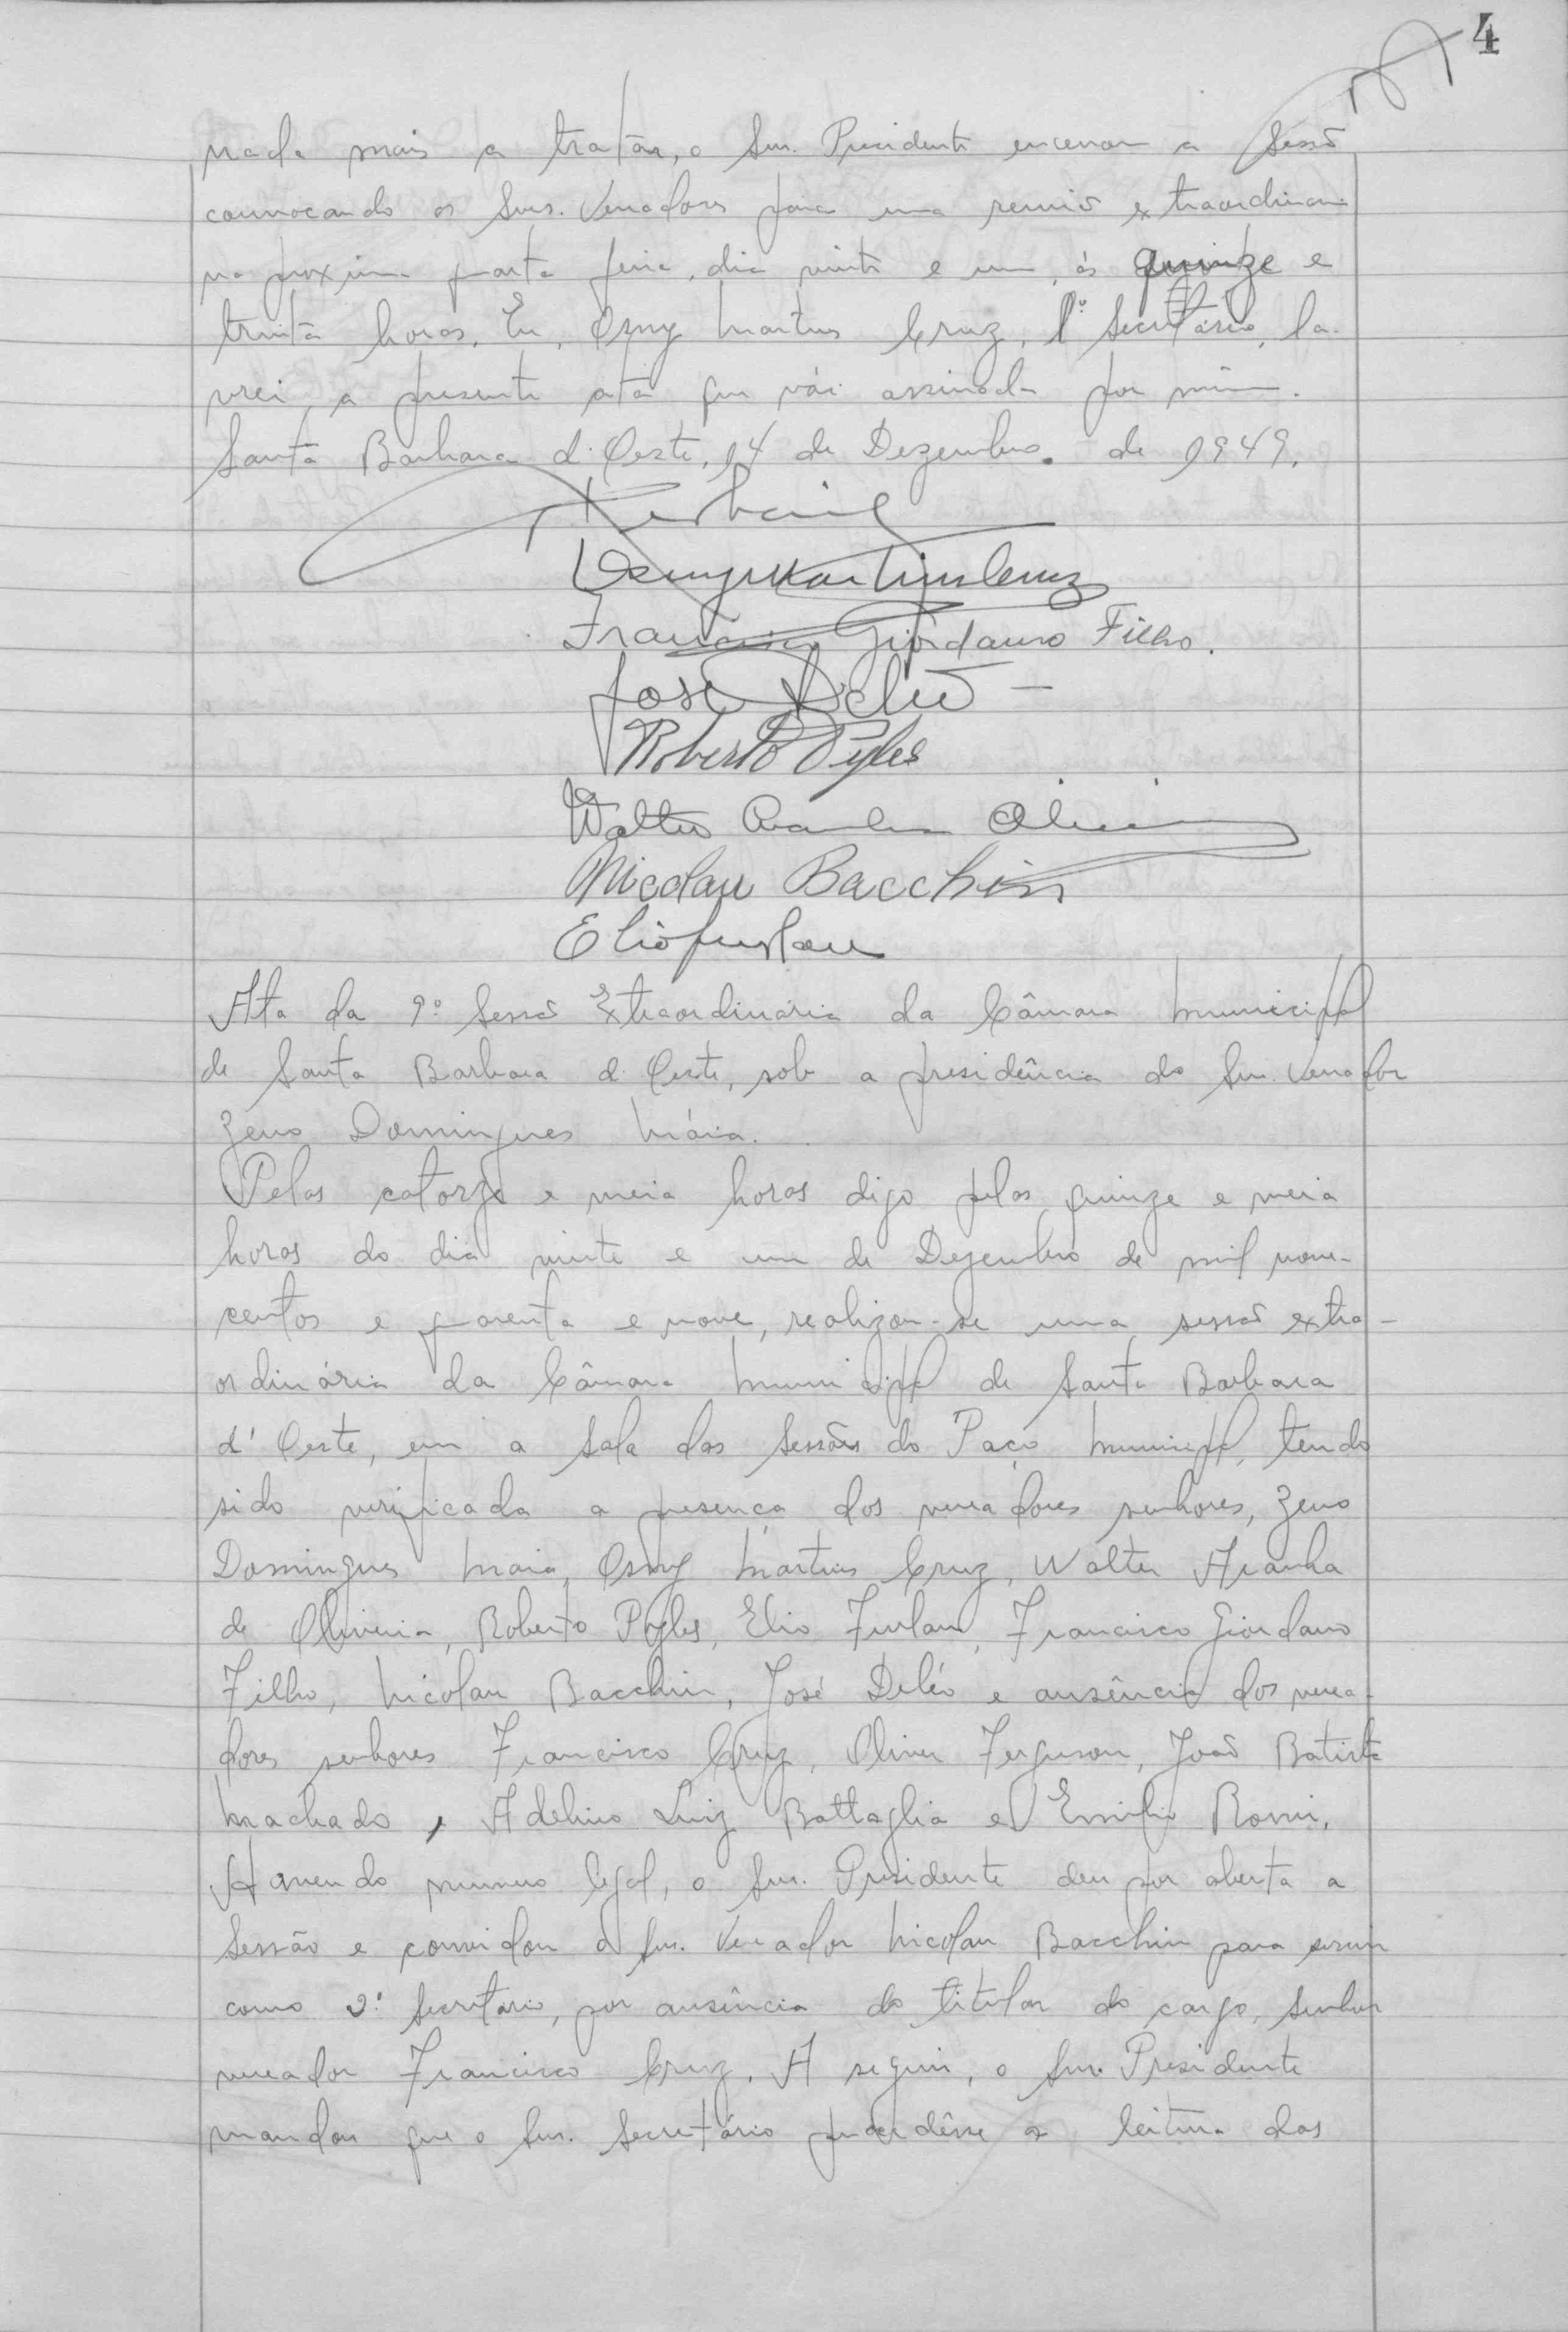 4
nada mais a tratar, o Snr. Presidente encerrou a Sessão
convocando os Snrs. Vereadores para uma reunião extraordinaria
na proxima quarta feira, dia vinte e um, ás quinze e
trinta horas. Eu, Osny Martins Cruz, 1º Secretário, la-
vrei, a presente ata que vái assinada por mim.
Santa Barbara d'Oeste, 14 de Dezembro de 1949.
Osny Martins Cruz
Francisco Giordano Filho.
José Deléo
Roberto Pyles
Walter Aranha Oliveira
Nicolau Bacchin
Elio Furlan
Ata da 9ª Sessão Extraordinária da Câmara Municipal
de Santa Barbara d'Oeste, sob a presidência do Snr. Vereador
Zeno Domingues Máia.
Pelas catorze e meia horas digo pelas quinze e meia
horas do dia vinte e um de Dezembro de mil nove-
centos e quarenta e nove, realizou-se uma sessão extra-
ordinária da Câmara Municipal de Santa Barbara
d'Oeste, em a Sala das Sessões do Paço Municipal, tendo
sido verificada a presença dos vereadores senhores, Zeno
Domingues Maia, Osny Martins Cruz, Walter Aranha
de Oliveira, Roberto Pyles, Elio Furlan, Francisco Giordano
Filho, Nicolau Bacchin, José Deléo e ausência dos verea-
dores senhores Francisco Cruz, Oliver Ferguson, João Batista
Machado, Adelino Luiz Battaglia e Emilio Romi.
Havendo numero legal, o Snr. Presidente deu por aberta a
Sessão e convidou o Snr. Vereador Nicolau Bacchin para servir
como 2º Secretário, por ausência do titular do cargo, Senhor
vereador Francisco Cruz. A seguir, o Snr. Presidente
mandou que o Snr. Secretário procedêsse a leitura das